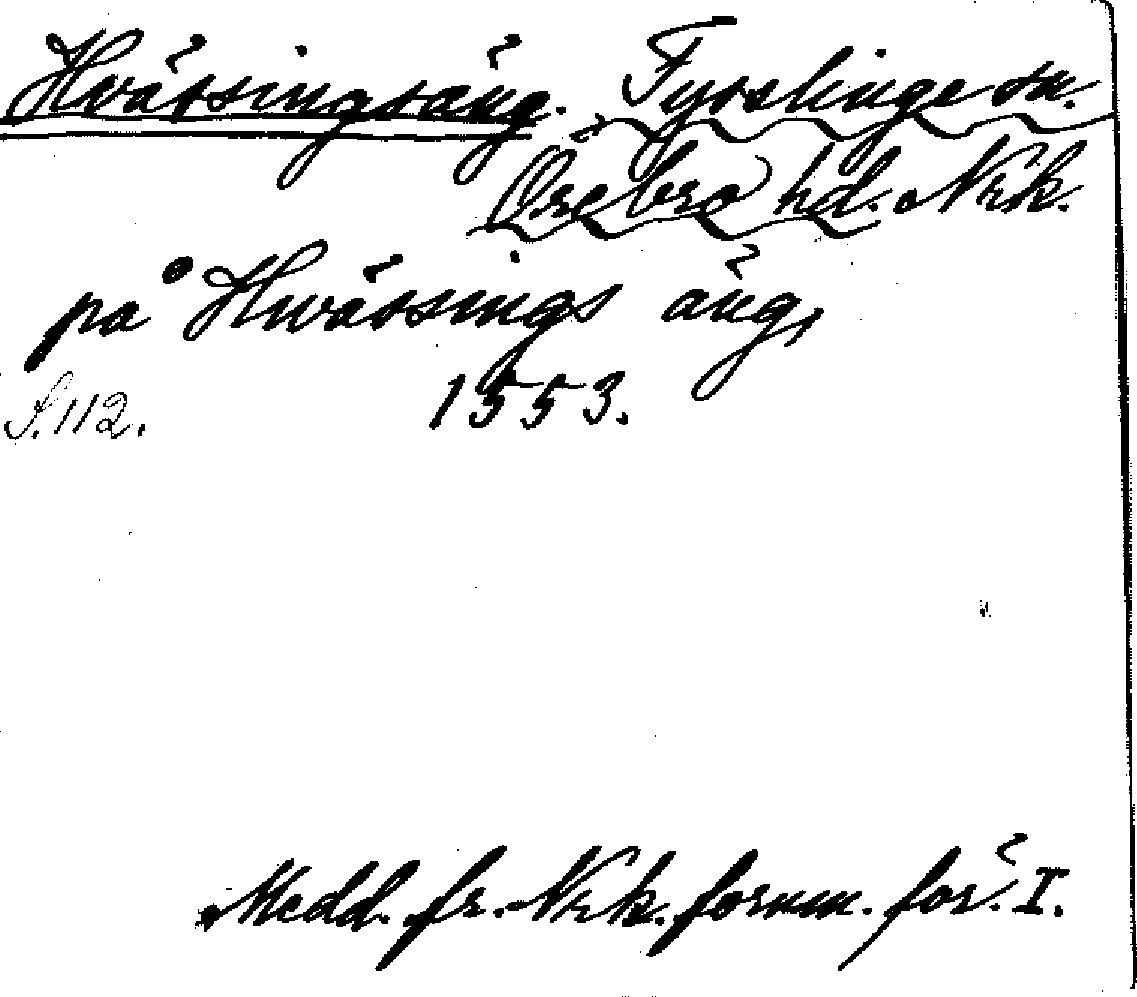 Hvässingsäng. Fyrslinge sn.
Örebro hd. Nrk.
på Hwässings äng,
1553.
S. 112.
Medd. fr. Nrk. fornm. för. I.